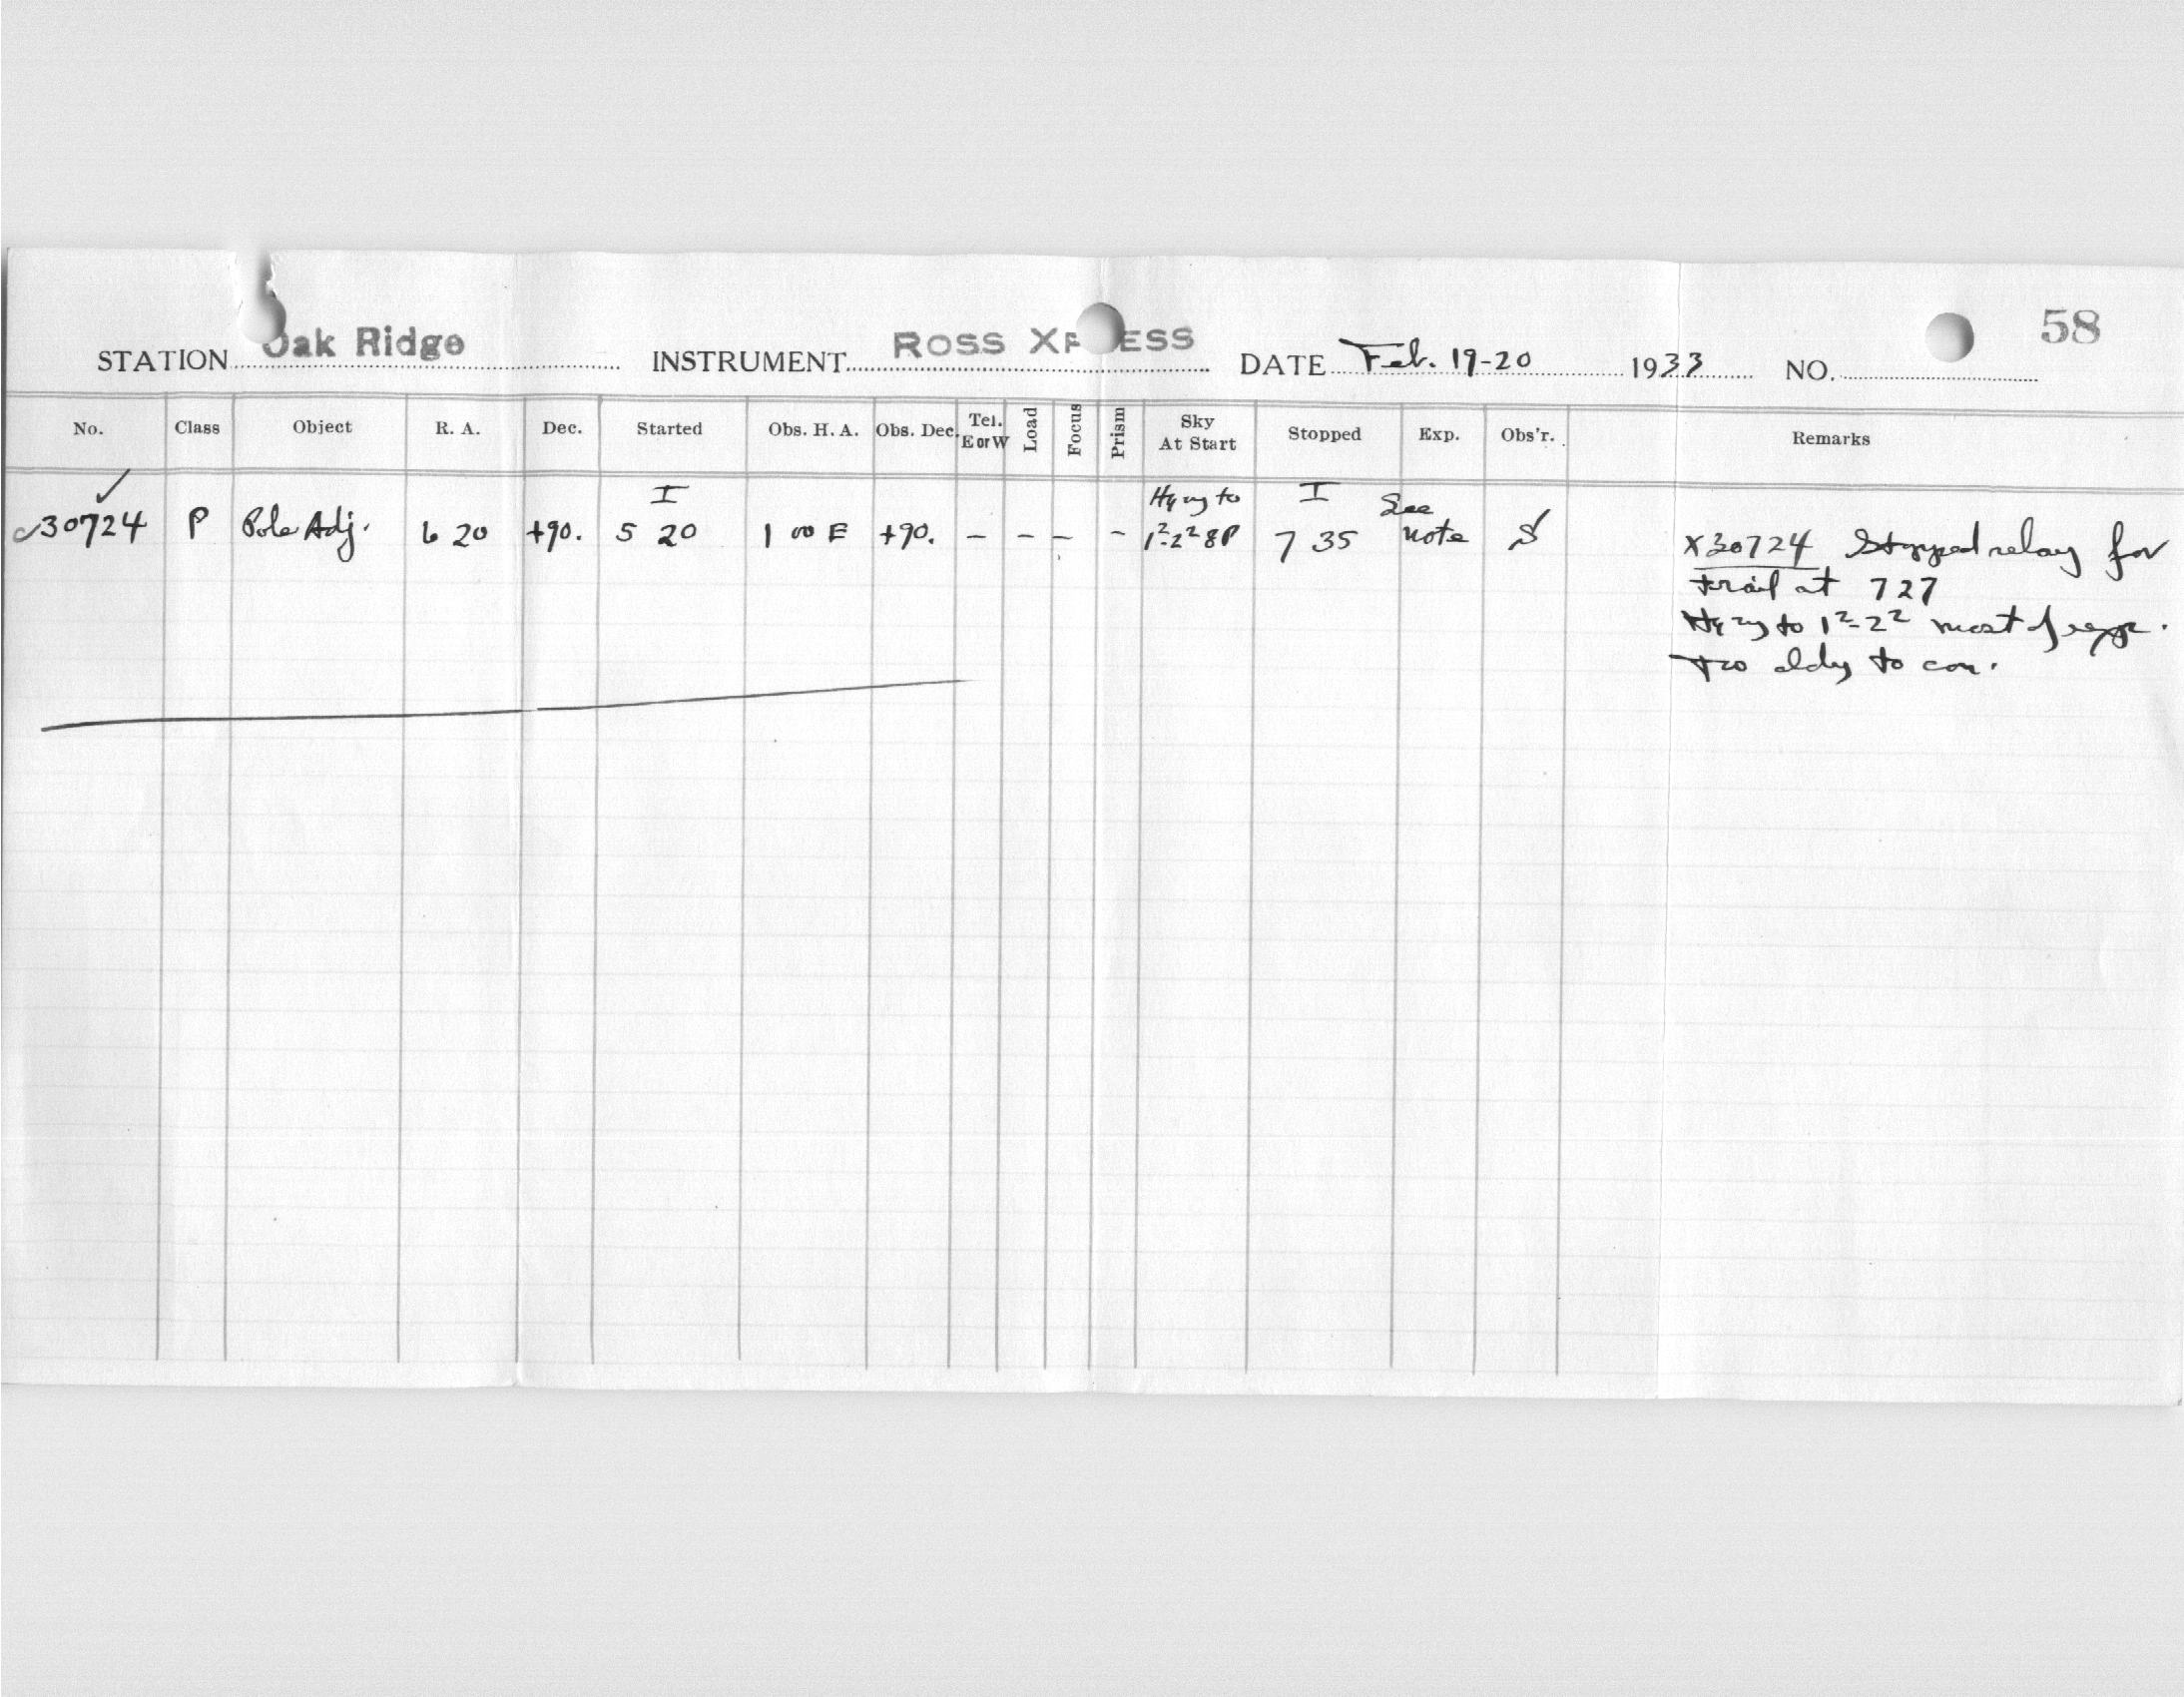 58
STATION Oak Ridge INSTRUMENT ROSS XPRESS DATE Feb. 19-20 1933 NO.
No. Class Object R. A. Dec. Started Obs. H. A. Obs. Dec. Tel. E or W Load Focus Prism Sky At Start Stopped Exp. Obs'r. Remarks
✓ I Hzy to I See
30724 P Pole Adj. 6 20 +90. 5 20 1 00 E +90. - - - - 1²-2² 8P 7 35 note S
X30724 Stopped relay for
trail at 727
Hzy to 1²-2² most of exp.
Too cldy to con.